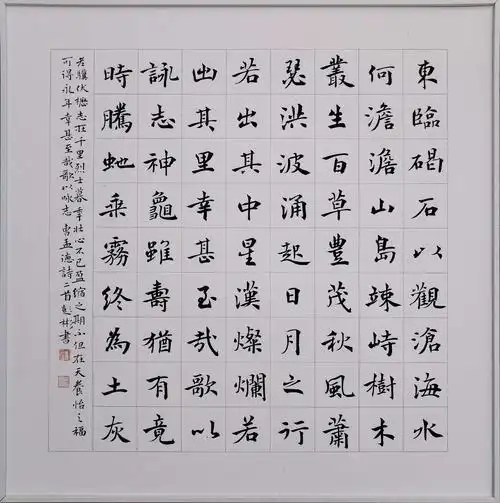 東臨碣石以觀滄海水
何澹澹山島竦峙樹木
叢生百草豐茂秋風蕭
瑟洪波涌起日月之行
若出其中星漢燦爛若
出其里幸甚至哉歌以
詠志神龜雖壽猶有竟
時騰虵乘霧終為土灰
老驥伏櫪志在千里烈士暮年壯心不已盈縮之期不但在天養怡之福
可得永年幸甚至哉歌以咏志 曹孟德詩二首彭彬書